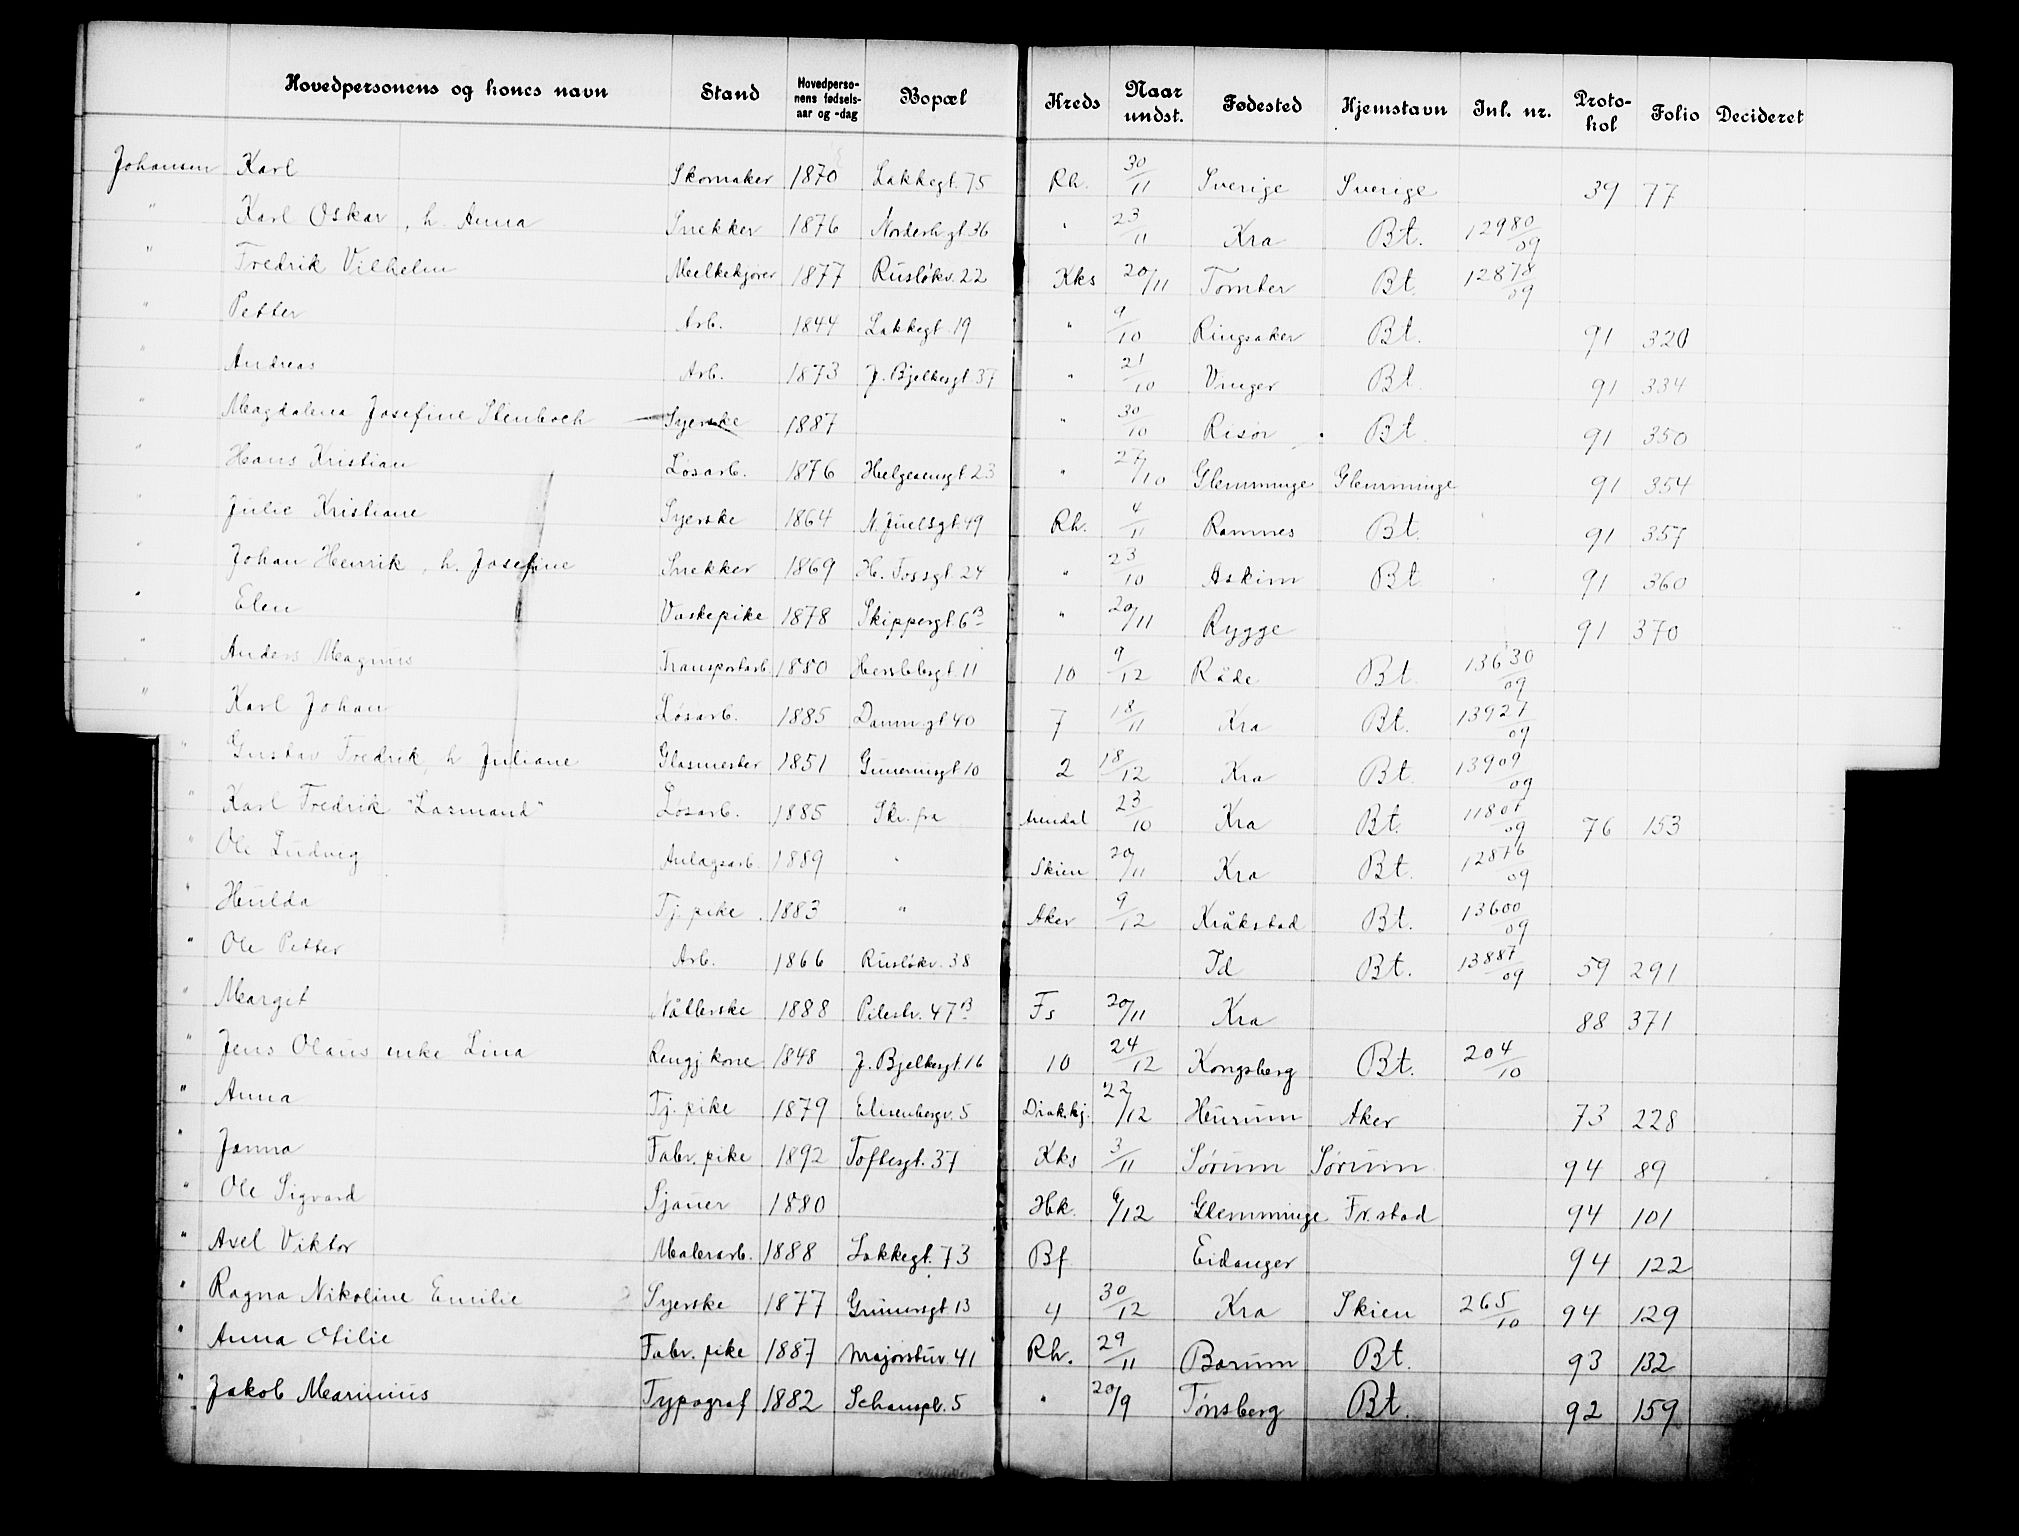 Hovedpersonens og kones navn Stand Hovedpersonens fødselsaar og -dag Bopæl Kreds Naar undst. Fødested Hjemstavn Inl. nr. Protokol Folio Decideret
Johansen Karl Skomaker 1870 Lakkegt. 75 Rh. 30/11 Sverige Sverige 39 77
" Karl Oskar, h. Anna Snekker 1876 Norderh.gt 36 " 23/11 Kra Bt. 12980/09
" Fredrik Vilhelm Melkekjører 1877 Rusløkv. 22 Kks 20/11 Tomter Bt. 12878/09
" Petter Arb. 1844 Lakkegt. 19 " 9/10 Ringsaker Bt. 91 320
" Andreas Arb. 1873 J. Bjelkesgt. 37 " 21/10 Vinger Bt. 91 334
" Magdalena Josefine Stenboch Syerske 1887 " 30/10 Risør Bt. 91 350
" Hans Kristian Løsarb. 1876 Helgesensgt 23 " 27/10 Glemminge Glemminge 91 354
" Julie Kristiane Syerske 1864 N. Juelsgt. 49 Rh. 4/11 Ramnes Bt. 91 357
" Johan Henrik, h. Josefine Snekker 1869 H. Fossgt. 24 " 23/10 Askim Bt. 91 360
" Elen Vaskepike 1878 Skippergt. 6B " 20/11 Rygge 91 370
" Anders Magnus Transportarb. 1880 Herslebsgt. 11 10 9/12 Råde Bt. 13630/09
" Karl Johan Løsarb. 1885 Danm.gt 40 7 18/11 Kra Bt. 13921/09
" Gustav Fredrik, h. Juliane Glasmester 1851 Grünersgt. 10 2 18/12 Kra Bt. 13909/09
" Karl Fredrik "Lasmand" Løsarb. 1885 Skr. fra Arendal 23/10 Kra Bt. 11801/09 76 153
" Ole Ludvig Anlægsarb. 1889 " Skien 20/11 Kra Bt. 12876/09
" Hulda Tj. pike 1883 " Aker 9/12 Kråkstad Bt. 13600/09
" Ole Petter Arb. 1866 Rusløkv. 38 Id Bt. 13887/09 59 291
" Margit Nåtlerske 1888 Pilestr. 47B Fs 20/11 Kra 88 371
" Jens Olaus enke Lina Rengj.kone 1848 J. Bjelkesgt. 16 10 24/12 Kongsberg Bt. 204/10
" Anna Tj. pike 1879 Elisenbergv. 5 Diak.hj. 22/12 Hurum Aker 73 228
" Janna Fabr. pike 1892 Toftesgt. 37 Kks 3/11 Sørum Sørum 94 89
" Ole Sigvard Sjauer 1880 Hk. 6/12 Glemminge Fr.stad 94 101
" Axel Viktor Malerarb. 1888 Lakkegt. 73 Bf Eidanger 94 122
" Ragna Nikoline Emilie Syerske 1877 Grünersgt. 13 4 30/12 Kra Skien 265/10 94 129
" Anna Otilie Fabr. pike 1887 Majorstuv. 41 Rh. 29/11 Bærum Bt. 93 132
" Jakob Marinius Typograf 1882 Schauspl. 5 " 20/9 Tønsberg Bt. 92 159